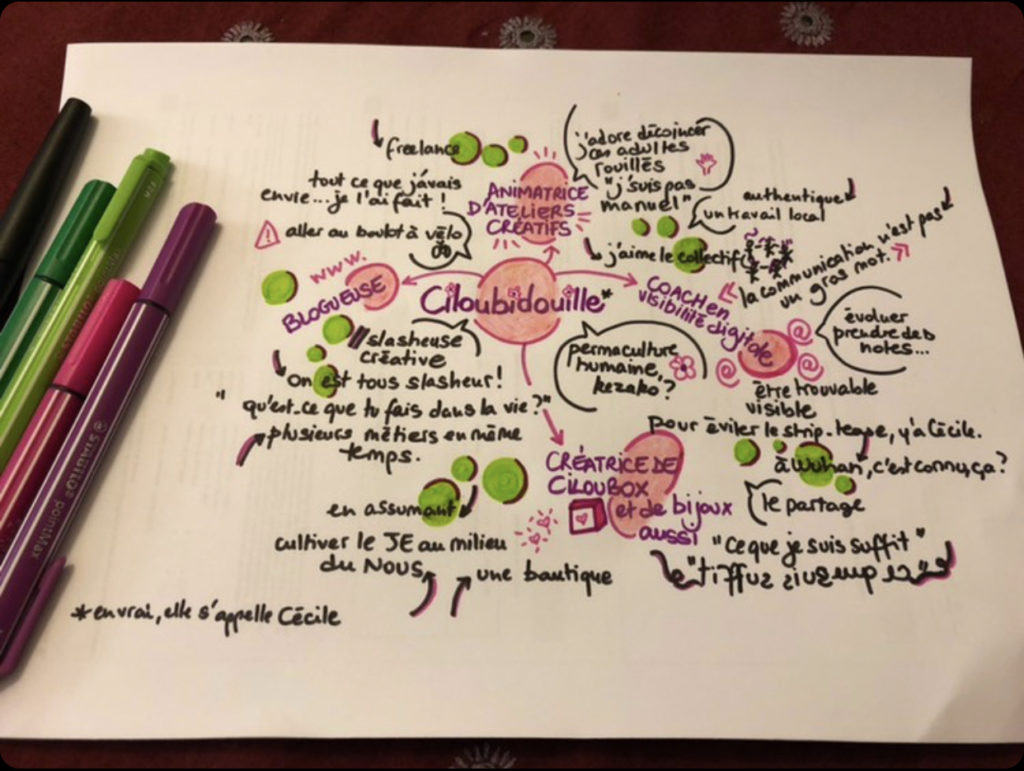 freelance
j'adore décoincer
ces adultes
rouillés
"j'suis pas
manuel"
tout ce que j'avais
envie... je l'ai fait !
ANIMATRICE
D'ATELIERS
CRÉATIFS
authentique
un travail local
! aller au boulot à vélo
j'aime le collectif
la communication n'est pas
un gros mot.
www.
BLOGUEUSE
Ciloubidouille*
COACH en
visibilité digitale
évoluer
prendre des
notes...
//slasheuse
créative
permaculture
humaine,
kezako ?
on est tous slasheur !
être trouvable
visible
"qu'est-ce que tu fais dans la vie ?"
pour éviter le strip-tease, y'a Cécile.
plusieurs métiers en même
temps.
CRÉATRICE DE
CILOUBOX
et de bijoux
aussi
à Wuhan, c'est connu, ça ?
le partage
en assumant
cultiver le JE au milieu
du NOUS
une boutique
"Ce que je suis suffit"
*en vrai, elle s'appelle Cécile
STABILO pointMax